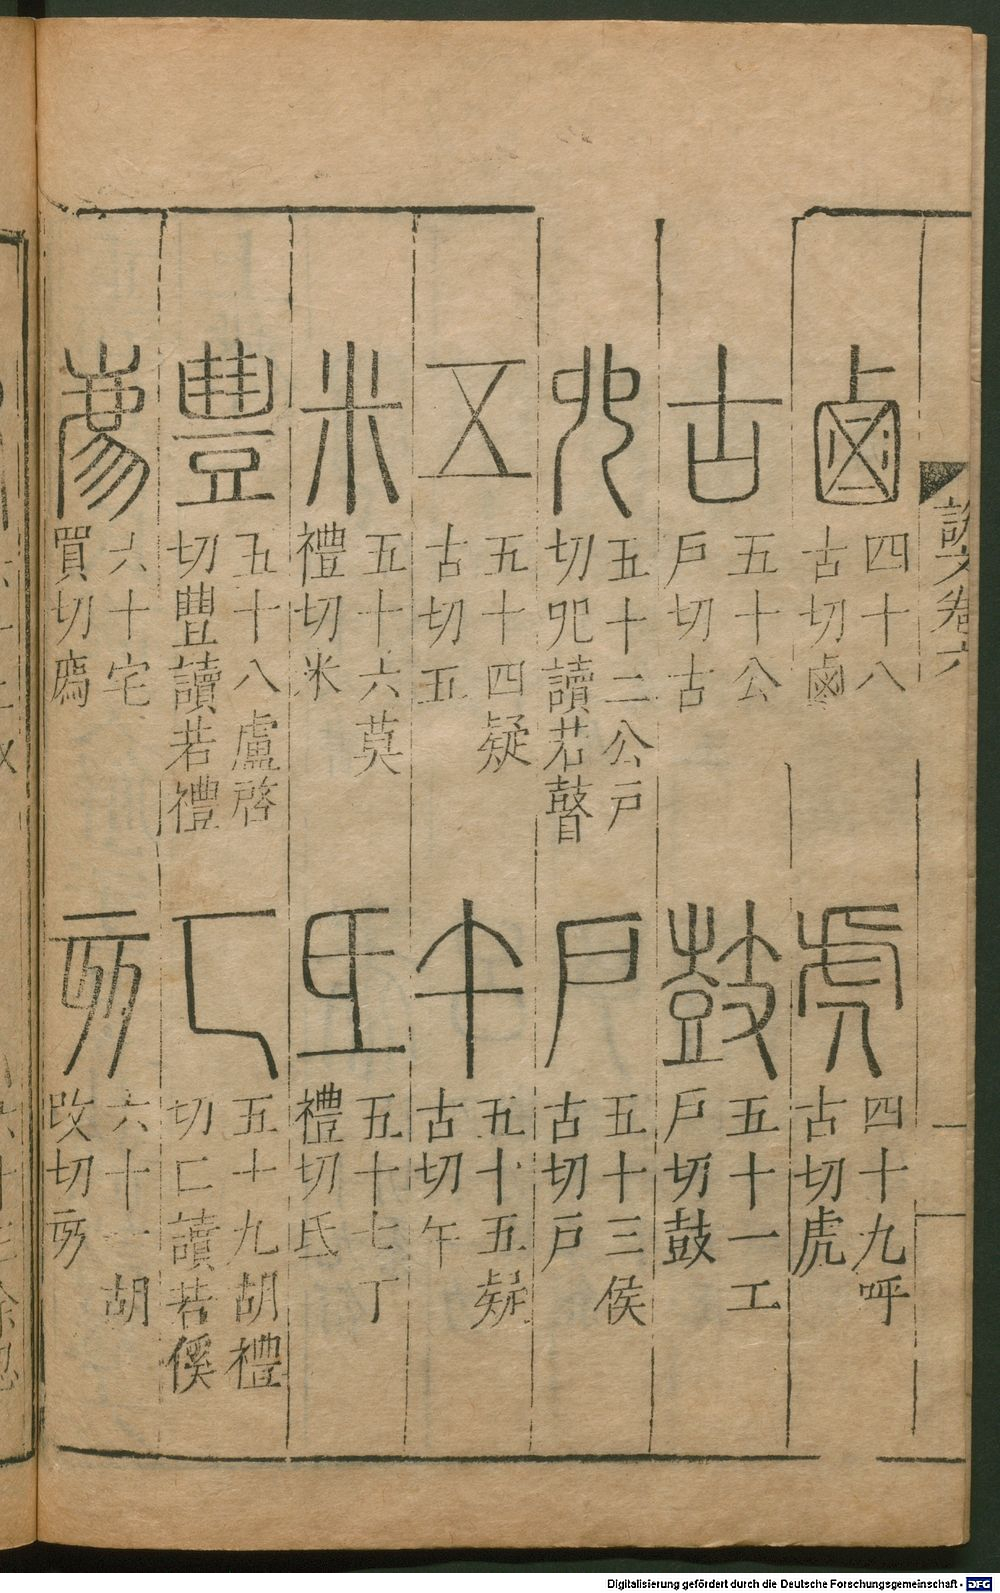 說文卷六
鹵
四十八
古切鹵
虎
四十九呼
古切虎
古
五十公
戶切古
鼓
五十一工
戶切鼓
𠑹
五十二公戶
切𠑹讀若瞽
戶
五十三侯
古切戶
五
五十四疑
古切五
午
五十五疑
古切午
米
五十六莫
禮切米
氐
五十七丁
禮切氐
豊
五十八盧啓
切豊讀若禮
匸
五十九胡禮
切匸讀若傒
廌
六十宅
買切廌
亥
六十一胡
改切亥
Digitalisierung gefördert durch die Deutsche Forschungsgemeinschaft - DFG